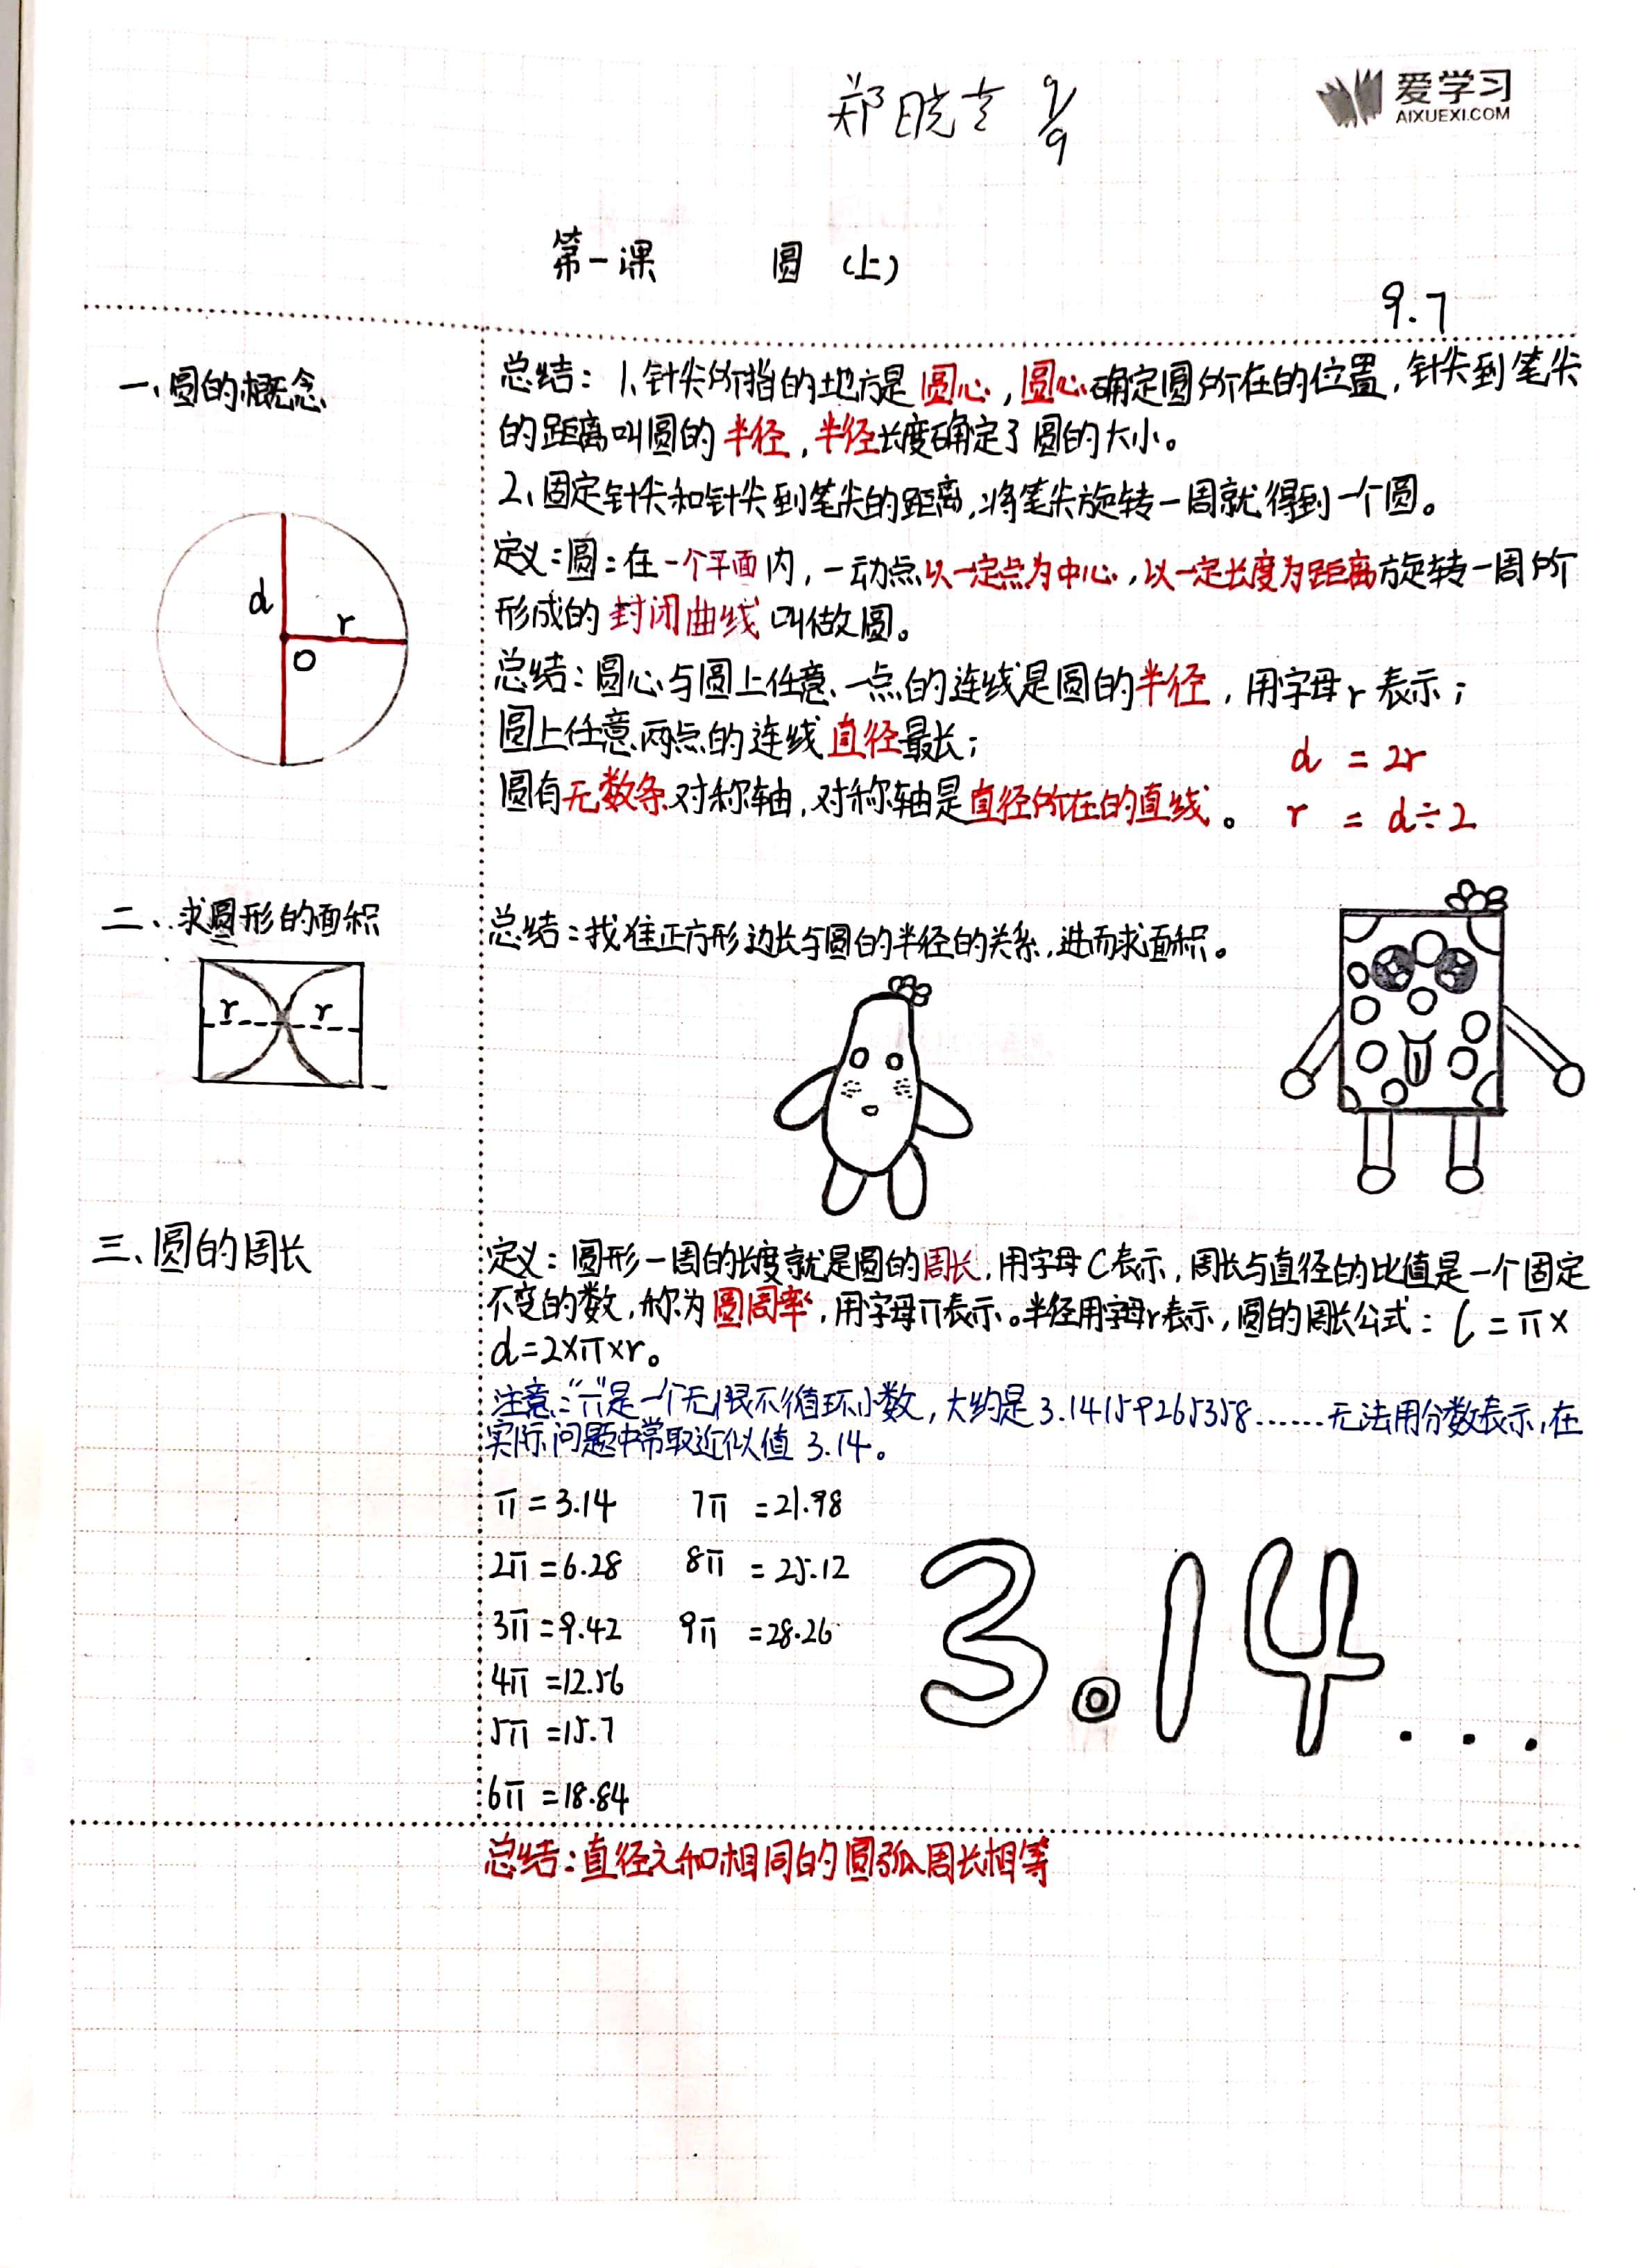 郑晓 9/9
爱学习
AIXUEXI.COM
第一课 圆 (上)
9.7
一、圆的概念
总结：1、针尖所指的地方是圆心，圆心确定圆所在的位置，针尖到笔尖
的距离叫圆的半径，半径长度确定了圆的大小。
2、固定针尖和针尖到笔尖的距离，将笔尖旋转一周就得到一个圆。
定义：圆：在一个平面内，一动点以一定点为中心，以一定长度为距离旋转一周所
形成的封闭曲线叫做圆。
总结：圆心与圆上任意一点的连线是圆的半径，用字母r表示；
圆上任意两点的连线直径最长；
圆有无数条对称轴，对称轴是直径所在的直线。
d = 2r
r = d÷2
d
r
O
二、求圆形的面积
总结：找准正方形边长与圆的半径的关系，进而求面积。
r r
三、圆的周长
定义：圆形一周的长度就是圆的周长，用字母C表示，周长与直径的比值是一个固定
不变的数，称为圆周率，用字母π表示。半径用字母r表示，圆的周长公式：C=π×
d=2×π×r。
注意：“π”是一个无限不循环小数，大约是3.14159265358……无法用分数表示，在
实际问题中常取近似值3.14。
π=3.14 7π=21.98
2π=6.28 8π=25.12
3π=9.42 9π=28.26
4π=12.56
5π=15.7
6π=18.84
3.14...
总结：直径之和相同的圆弧周长相等